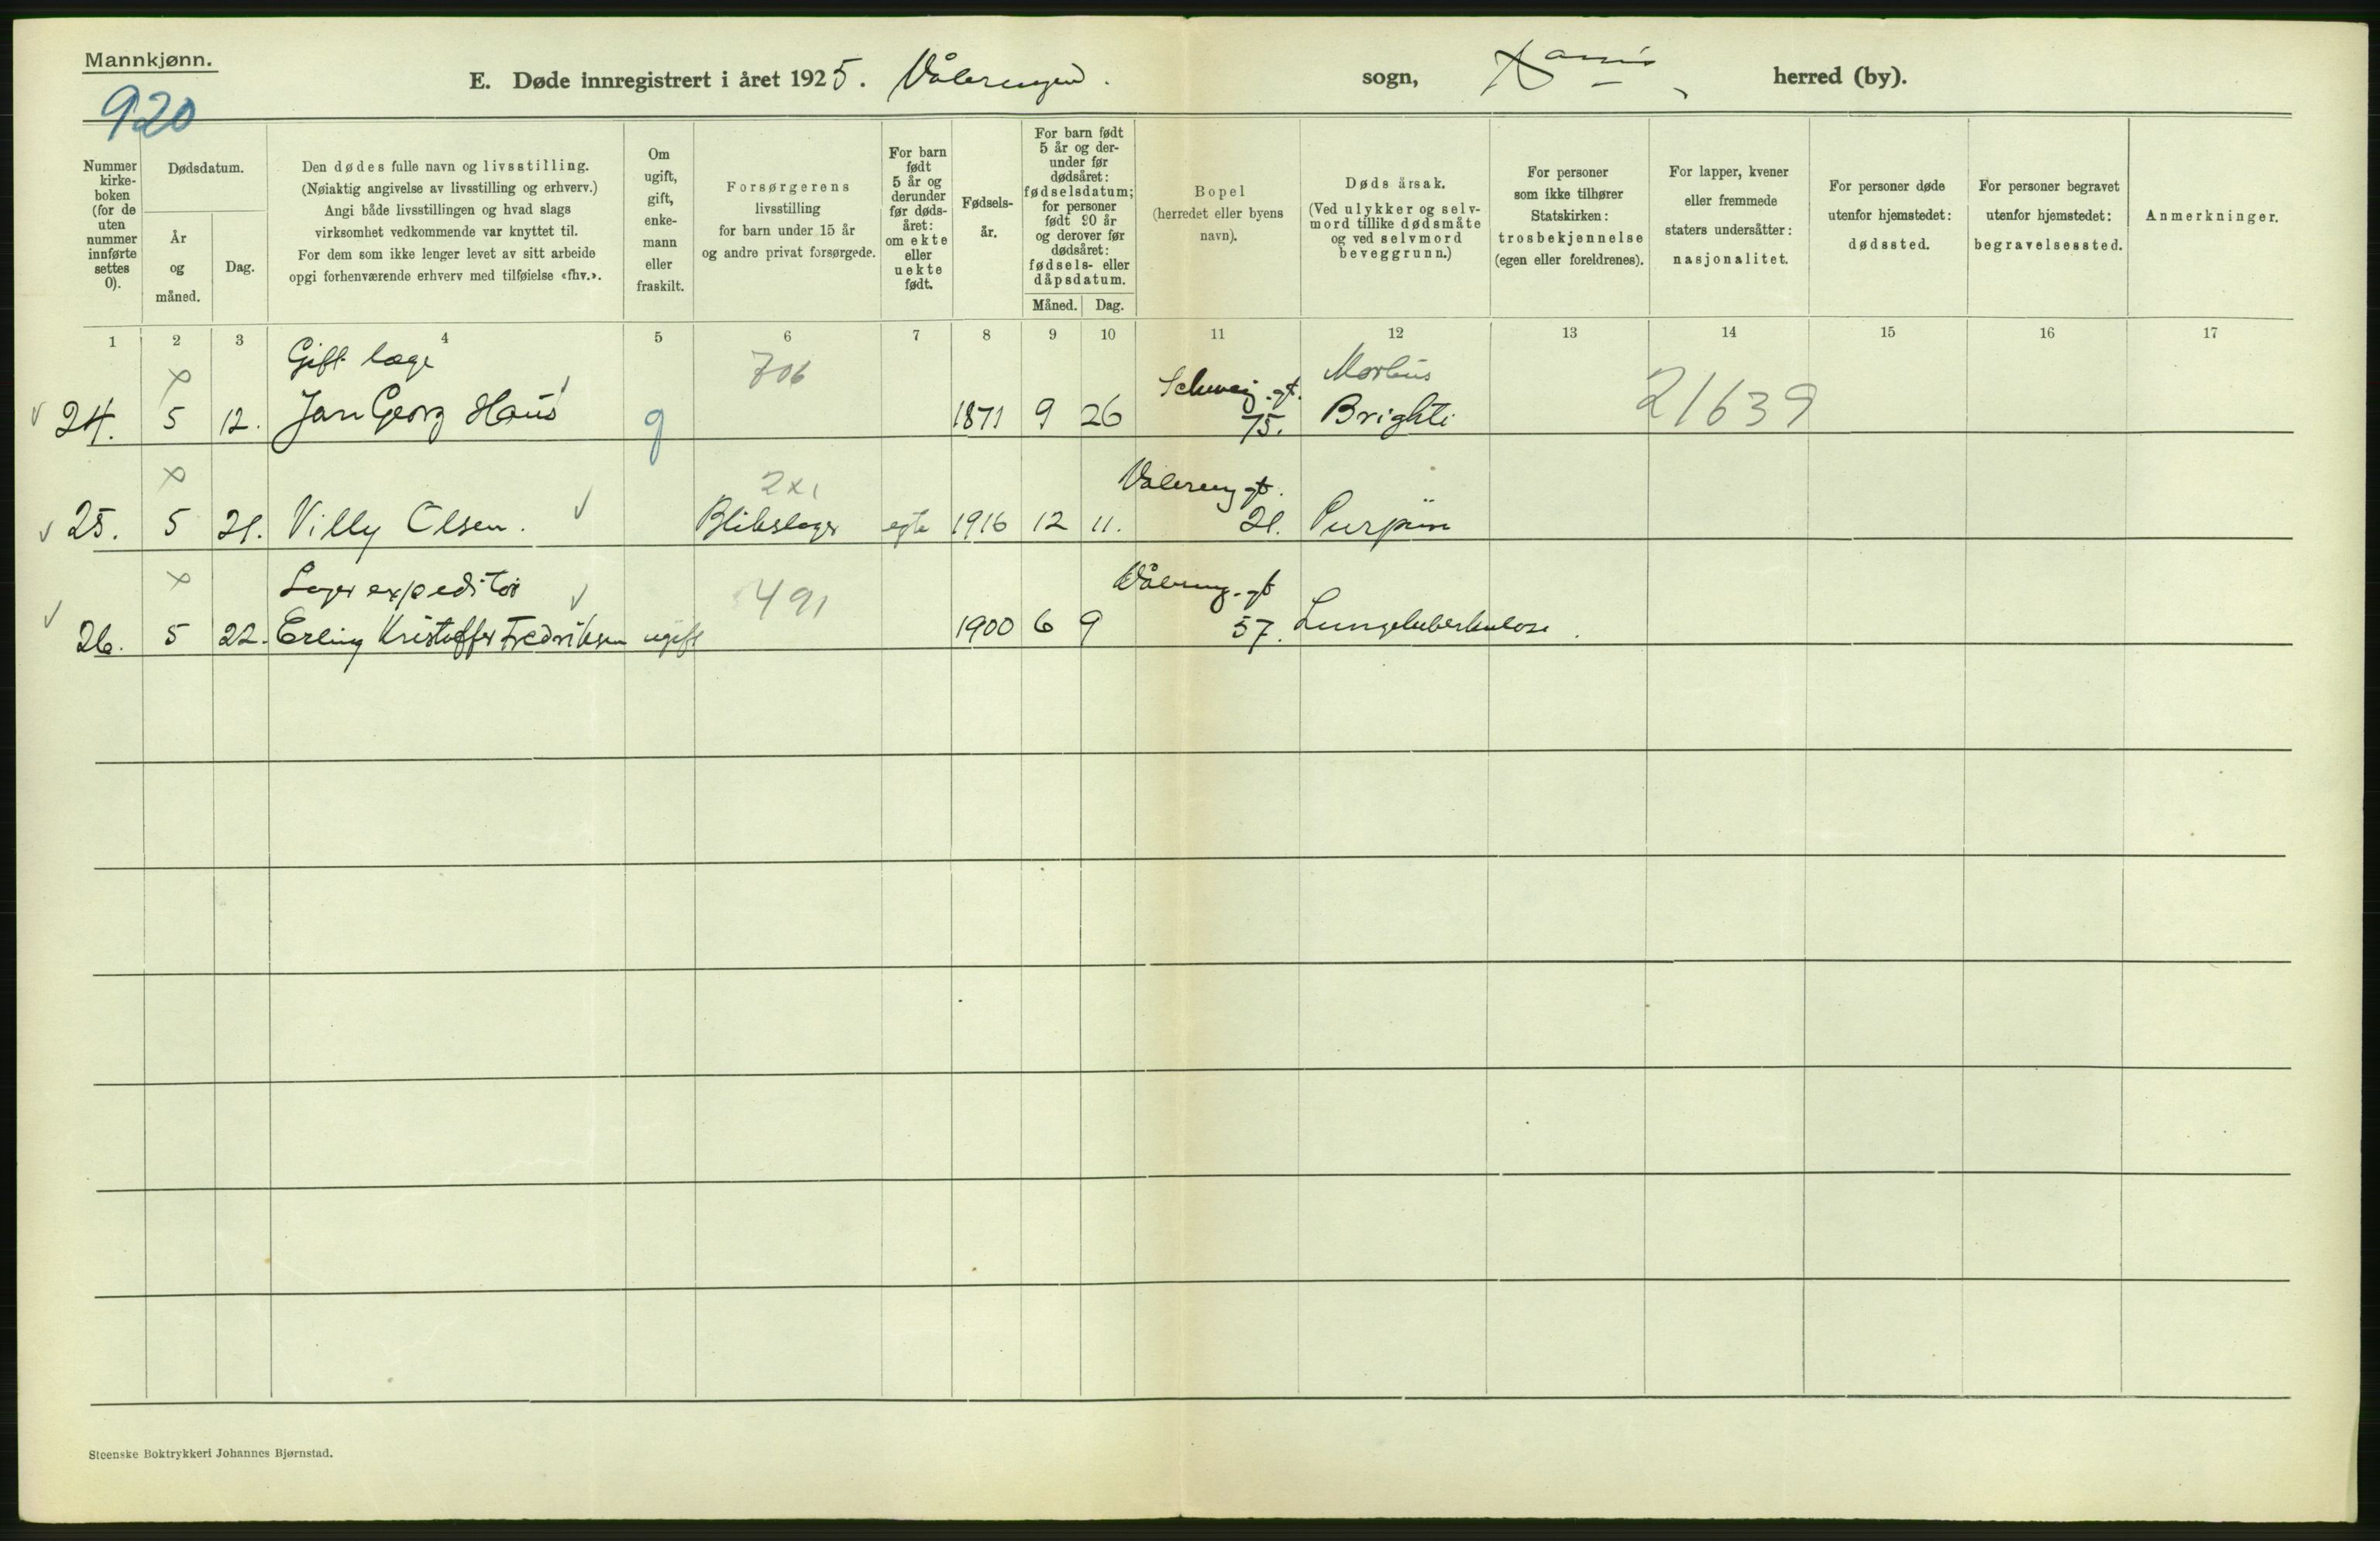 Mannkjønn.
E. Døde innregistrert i året 1925. Vålerengen. sogn, herred (by).
920
Nummer kirke-boken (for de uten nummer innførte settes 0).
Dødsdatum.
År og måned.
Dag.
Den dødes fulle navn og livsstilling.
(Nøiaktig angivelse av livsstilling og erhverv.)
Angi både livsstillingen og hvad slags
virksomhet vedkommende var knyttet til.
For dem som ikke lenger levet av sitt arbeide
opgi forhenværende erhverv med tilføielse «fhv.».
Om ugift, gift, enke-mann eller fraskilt.
Forsørgerens
livsstilling
for barn under 15 år
og andre privat forsørgede.
For barn født 5 år og derunder før døds-året: om ekte eller uekte født.
Fødsels-år.
For barn født 5 år og der-under før dødsåret: fødselsdatum; for personer født 90 år og derover før dødsåret: fødsels- eller dåpsdatum.
Måned. Dag.
Bopel
(herredet eller byens
navn).
Dødsårsak.
(Ved ulykker og selv-
mord tillike dødsmåte
og ved selvmord
beveggrunn.)
For personer
som ikke tilhører
Statskirken:
trosbekjennelse
(egen eller foreldrenes).
For lapper, kvener
eller fremmede
staters undersåtter:
nasjonalitet.
For personer døde
utenfor hjemstedet:
dødssted.
For personer begravet
utenfor hjemstedet:
begravelsessted.
Anmerkninger.
1 2 3 4 5 6 7 8 9 10 11 12 13 14 15 16 17
Gift læge 706 Schweig.gt. Morbus
24. 5 12. Jan Georg Haus g 1871 9 26 75. Brighti 21639
2x1 Valereng gt.
25. 5 21. Villy Olsen. Blikslager egte 1916 12 11. 21. Purpura
Lager expeditør 491 Vålereng. gt
26. 5 22. Erling Kristoffer Fredriksen ugift 1900 6 9 57. Lungetuberkulose.
Steenske Boktrykkeri Johannes Bjørnstad.